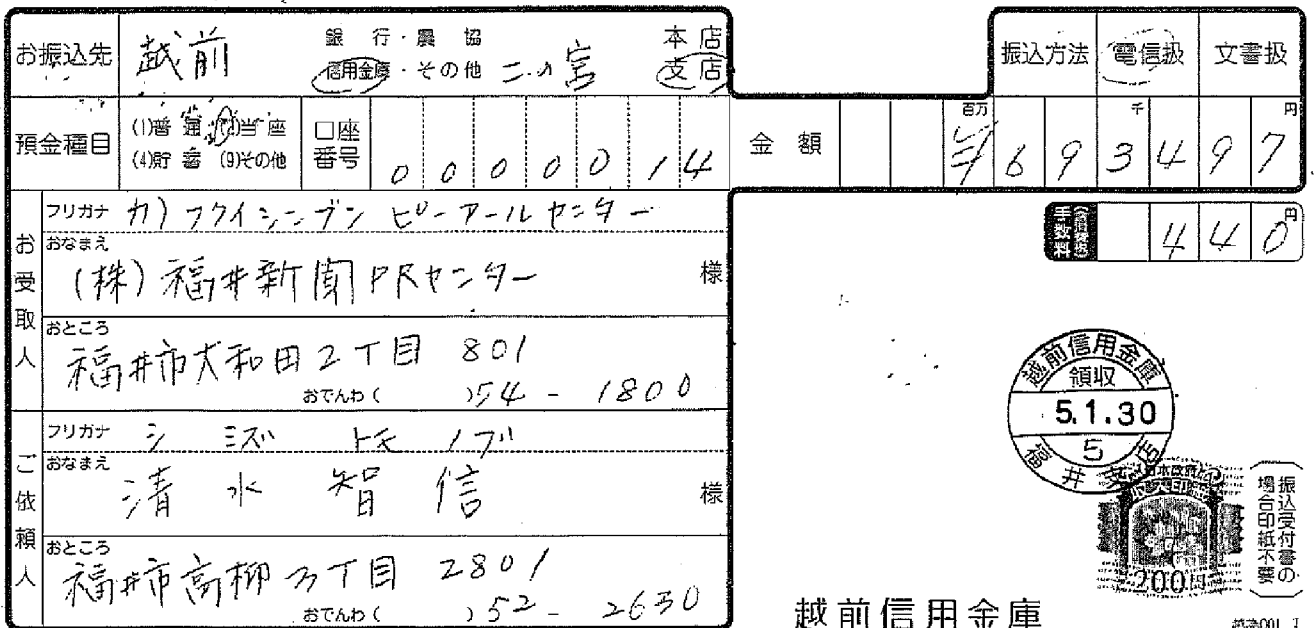 お振込先 越前 銀行・農協 本店
信用金庫・その他 二の宮 支店
振込方法 電信扱 文書扱
預金種目 (1)普通 (2)当座 口座
(4)貯蓄 (9)その他 番号 0 0 0 0 0 1 4
金額 百万 千 円
¥ 6 9 3 4 9 7
手数料 円
4 4 0
お受取人
フリガナ カ)フクイシンブン ピーアールセンター
おなまえ
(株)福井新聞PRセンター 様
おところ
福井市大和田2丁目 801
おでんわ( )54-1800
ご依頼人
フリガナ シミズ トモノブ
おなまえ
清水 智信 様
おところ
福井市高柳3丁目 2801
おでんわ( )52-2630
越前信用金庫
領収
5.1.30
5
福井支店
200円
振込受付書の
場合印紙不要
越前信用金庫